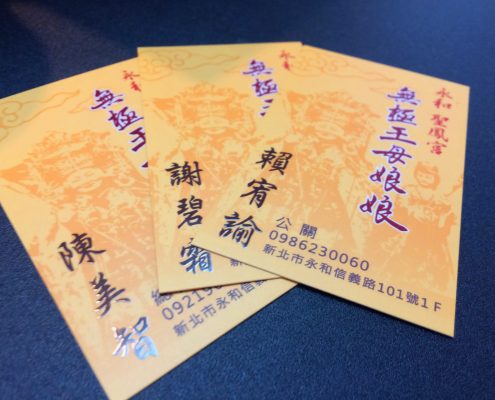 永和 聖鳳宮
無極王母娘娘
賴宥諭
公關
0986230060
新北市永和信義路101號1F
無極
謝碧霜
新北市永和
永
無極王母
陳美智
092
新北市永和信義路